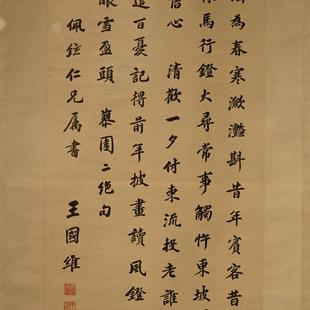 為春寒瀲灩斟昔年賓客昔
馬行鐙火尋常事觸忤東坡
心 清歡一夕付東流投老誰
百憂記得前年披畫讀風鐙
眼雪盈頭 園二絕句
佩鋐仁兄屬書
王國維